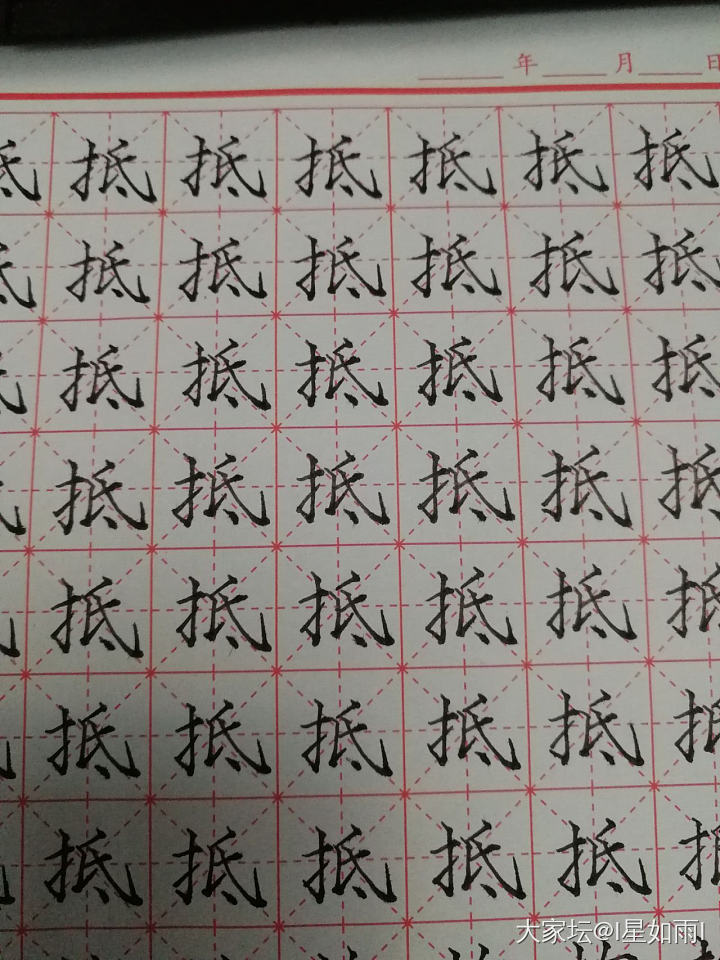 年 月 日
抵 抵 抵 抵 抵 抵
抵 抵 抵 抵 抵 抵
抵 抵 抵 抵 抵 抵
抵 抵 抵 抵 抵 抵
抵 抵 抵 抵 抵 抵
抵 抵 抵 抵 抵
抵 抵 抵 抵 抵
大家坛@I星如雨I